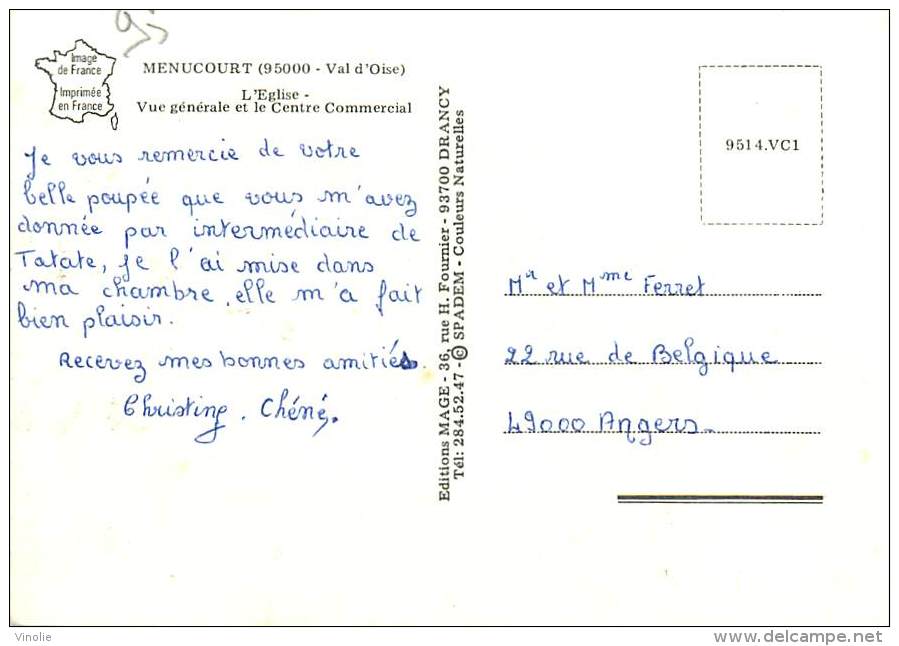 95
Image
de France
Imprimée
en France
MENUCOURT (95000 - Val d'Oise)
L'Eglise -
Vue générale et le Centre Commercial
Je vous remercie de votre
belle poupée que vous m'avez
donnée par intermédiaire de
Tatate, je l'ai mise dans
ma chambre, elle m'a fait
bien plaisir.
Recevez mes bonnes amitiés.
Christine. Chéné.
Editions MAGE - 36, rue H. Fournier - 93700 DRANCY
Tél: 284.52.47 - © SPADEM - Couleurs Naturelles
9514.VC1
Mr et Mme Ferret
22 rue de Belgique
49000 Angers
Vinolie
delcampe.net